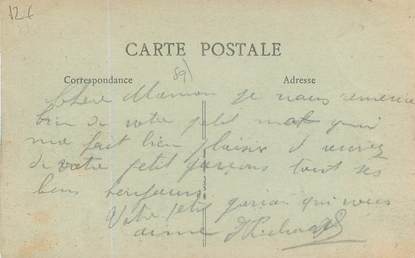 12 f
CARTE POSTALE
89)
Correspondance
Adresse
Chere Maman je vous remercie
bien de votre petit mot qui
me fait bien plaisir
de votre petit garçons tout ses
bons
Votre petit garçon qui vous
aime